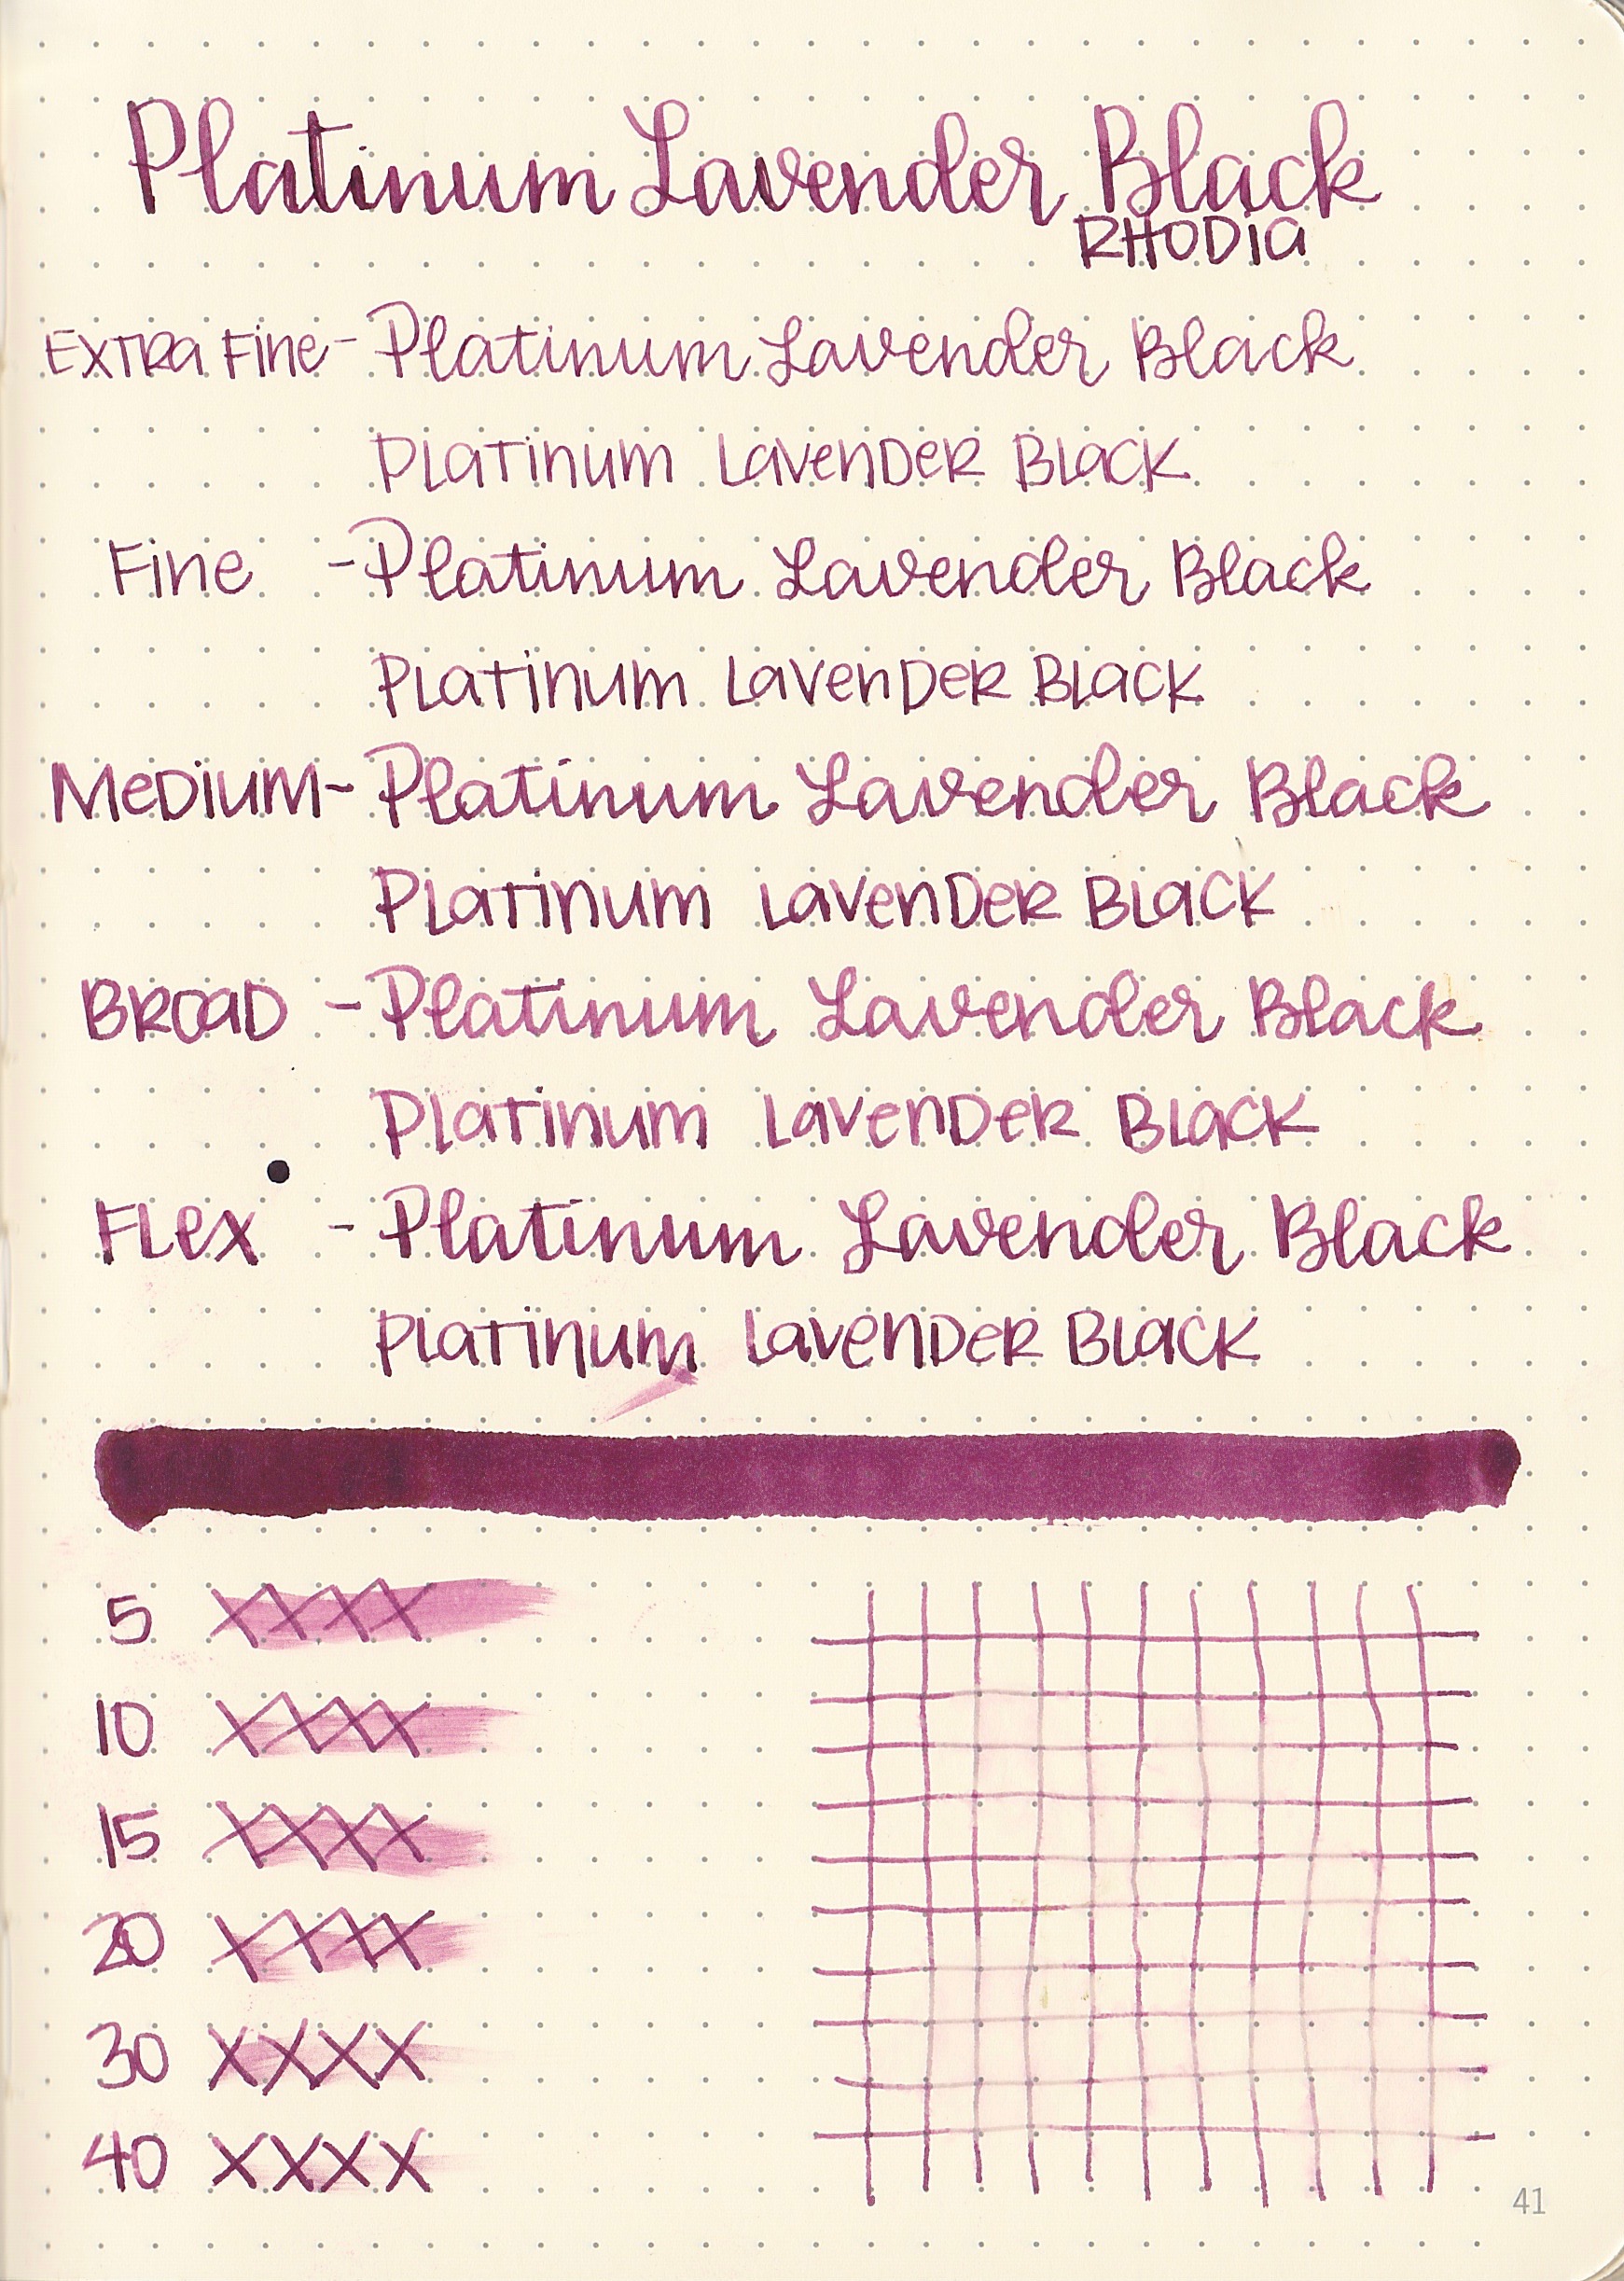 Platinum Lavender Black
RHODIA
EXTRA Fine - Platinum Lavender Black
PLATinum LavenDeR BLACK
Fine - Platinum Lavender Black
PLATinum LavenDeR BLACK
MeDIUM - Platinum Lavender Black
PLATinum LavenDeR BLACK
BROAD - Platinum Lavender Black
PLATinum LavenDeR BLACK
FLex - Platinum Lavender Black
PLATinum LavenDeR BLACK
5 XXXX
10 XXXX
15 XXXX
20 XXXX
30 XXXX
40 XXXX
41